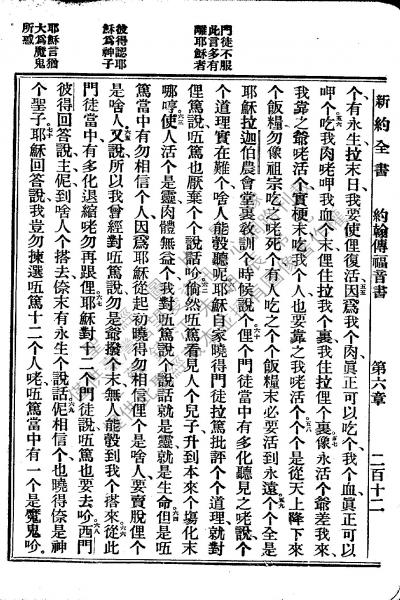 新約全書　約翰傳福音書　第六章　二百十二
門徒不服
此言多有
離耶穌者
彼得認耶
穌爲神子
耶穌言猶
大爲魔鬼
所惑
个有永生拉末日我要使俚復活因爲我个肉眞正可以吃个我个血眞正可以
呷个吃我肉咾呷我血个末俚住拉我裏我住拉俚裏像永活个爺差我來
我靠之爺咾活个實梗末吃我个人也要靠之我咾活个个个是從天上降下來
个飯糧勿像祖宗吃之咾死个有人吃之个个飯糧末必要活到永遠个个全是
耶穌拉迦伯農會堂裏敎訓个時候說个俚个門徒當中有多化聽見之咾說个
个道理實在難个啥人能彀聽呢耶穌自家曉得門徒拉篤批評个个道理就對
俚篤說㕶篤也厭棄个个說話吤倘然㕶篤看見人个兒子升到本來个塲化末
哪哼使人活个是靈肉體無益个我對㕶篤說个說話就是靈就是生命但是㕶
篤當中有勿相信个人因爲耶穌從起初曉得勿相信俚个是啥人要賣脫俚个
是啥人又說所以我曾經對㕶篤說勿是爺撥个末無人能彀到我个搭來從此
門徒當中有多化退縮咾勿再跟俚耶穌對十二个門徒說㕶篤也要去吤西門
彼得回答說主伲到啥人个搭去倷末有永生个說話伲相信个也曉得倷是神
个聖子耶穌回答說我豈勿揀選㕶篤十二个人咾㕶篤當中有一个是魔鬼吤